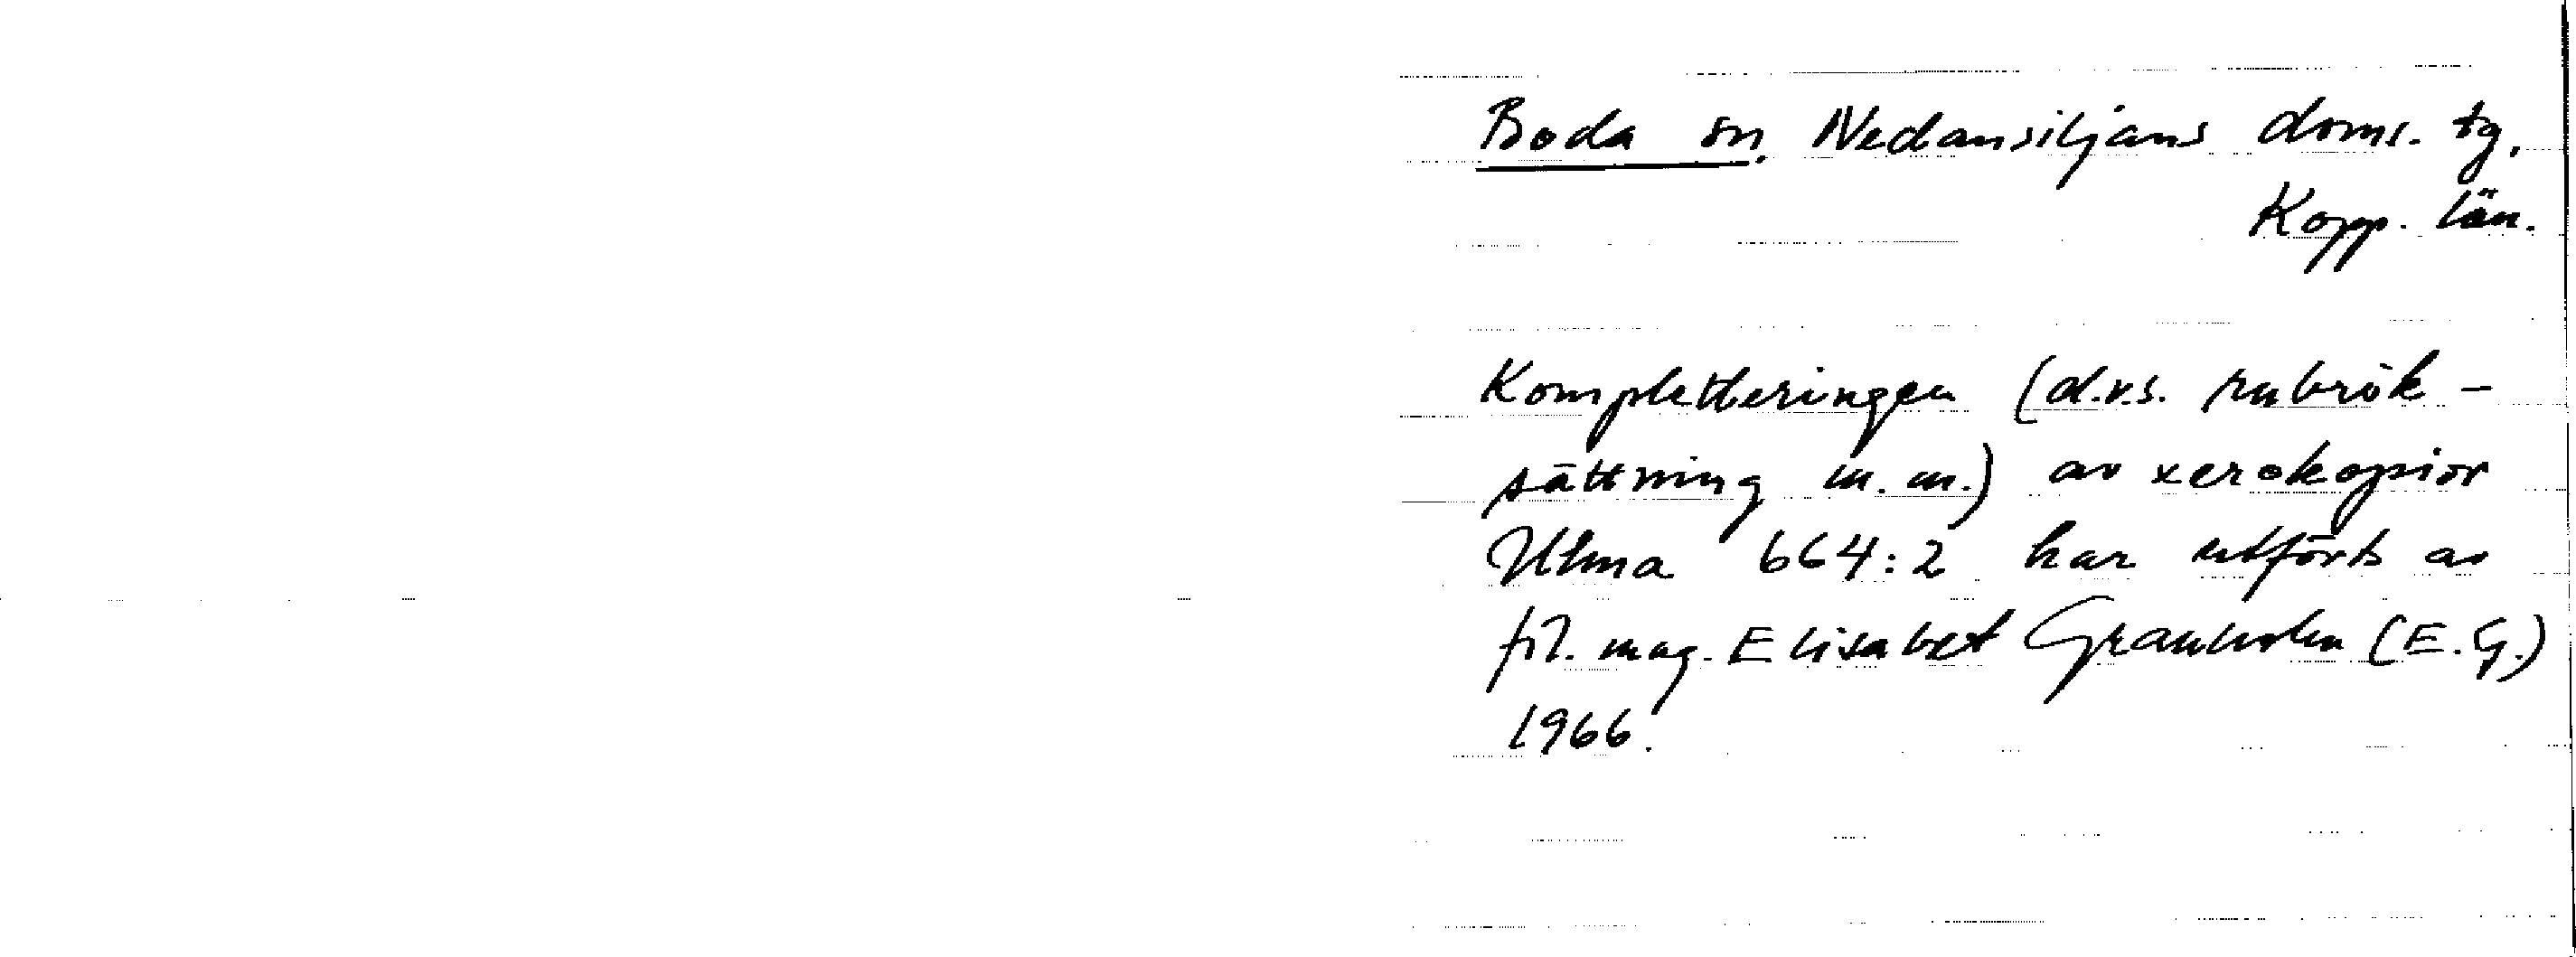 Boda sn, Nedansiljans doms. tg,
Kopp. län.
Kompletteringen (d.v.s. rubrik-
sättning m.m.) av xerokopior
Ulma 664:2 har utförts av
fil. mag. Elisabet Granholm (E.G.)
1966.